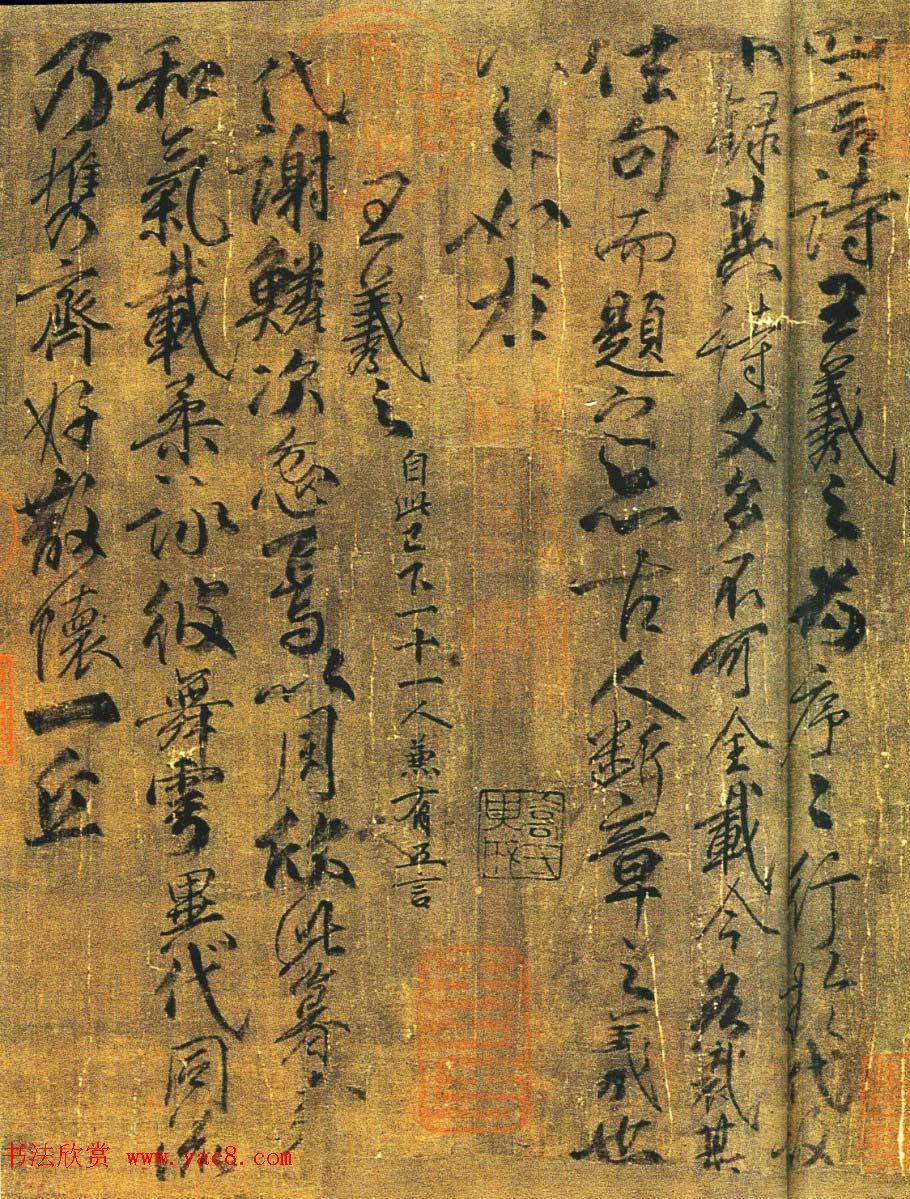 四言詩王羲之為序〻行於代故
不錄其詩文多不可全載今各裁其
佳句而題之亦古人斷章之義也
如左
王羲之 自此已下一十一人兼有五言
代謝鱗次忽焉以周欣此暮春
和氣載柔詠彼舞雩異代同流
乃携齊好散懷一丘
书法欣赏 www.yac8.com